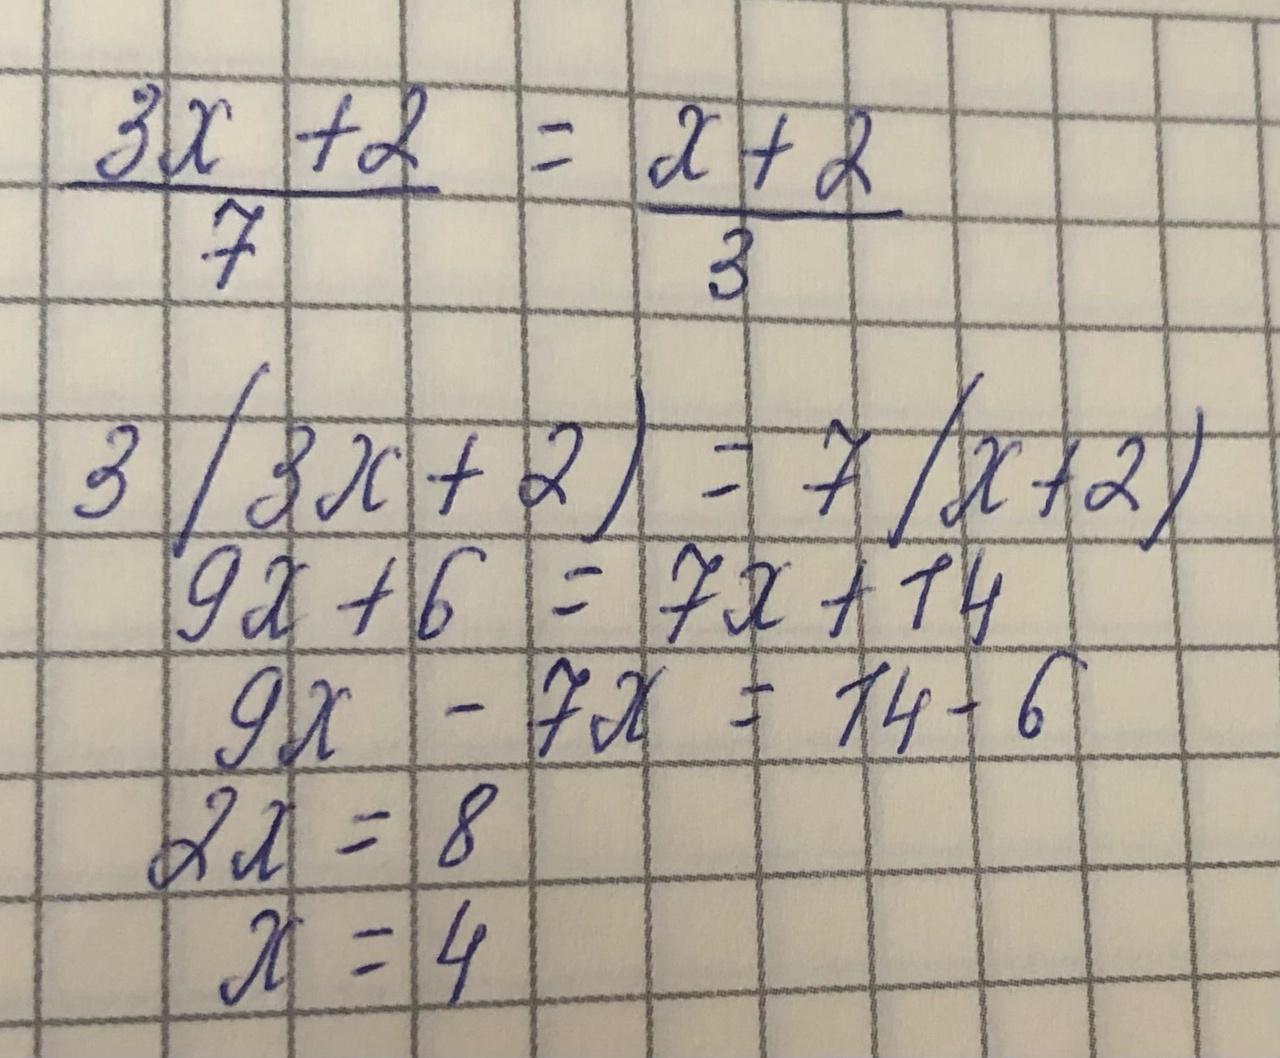 3x + 2 = x + 2
7 3
3 (3x + 2) = 7 (x + 2)
9x + 6 = 7x + 14
9x - 7x = 14 - 6
2x = 8
x = 4